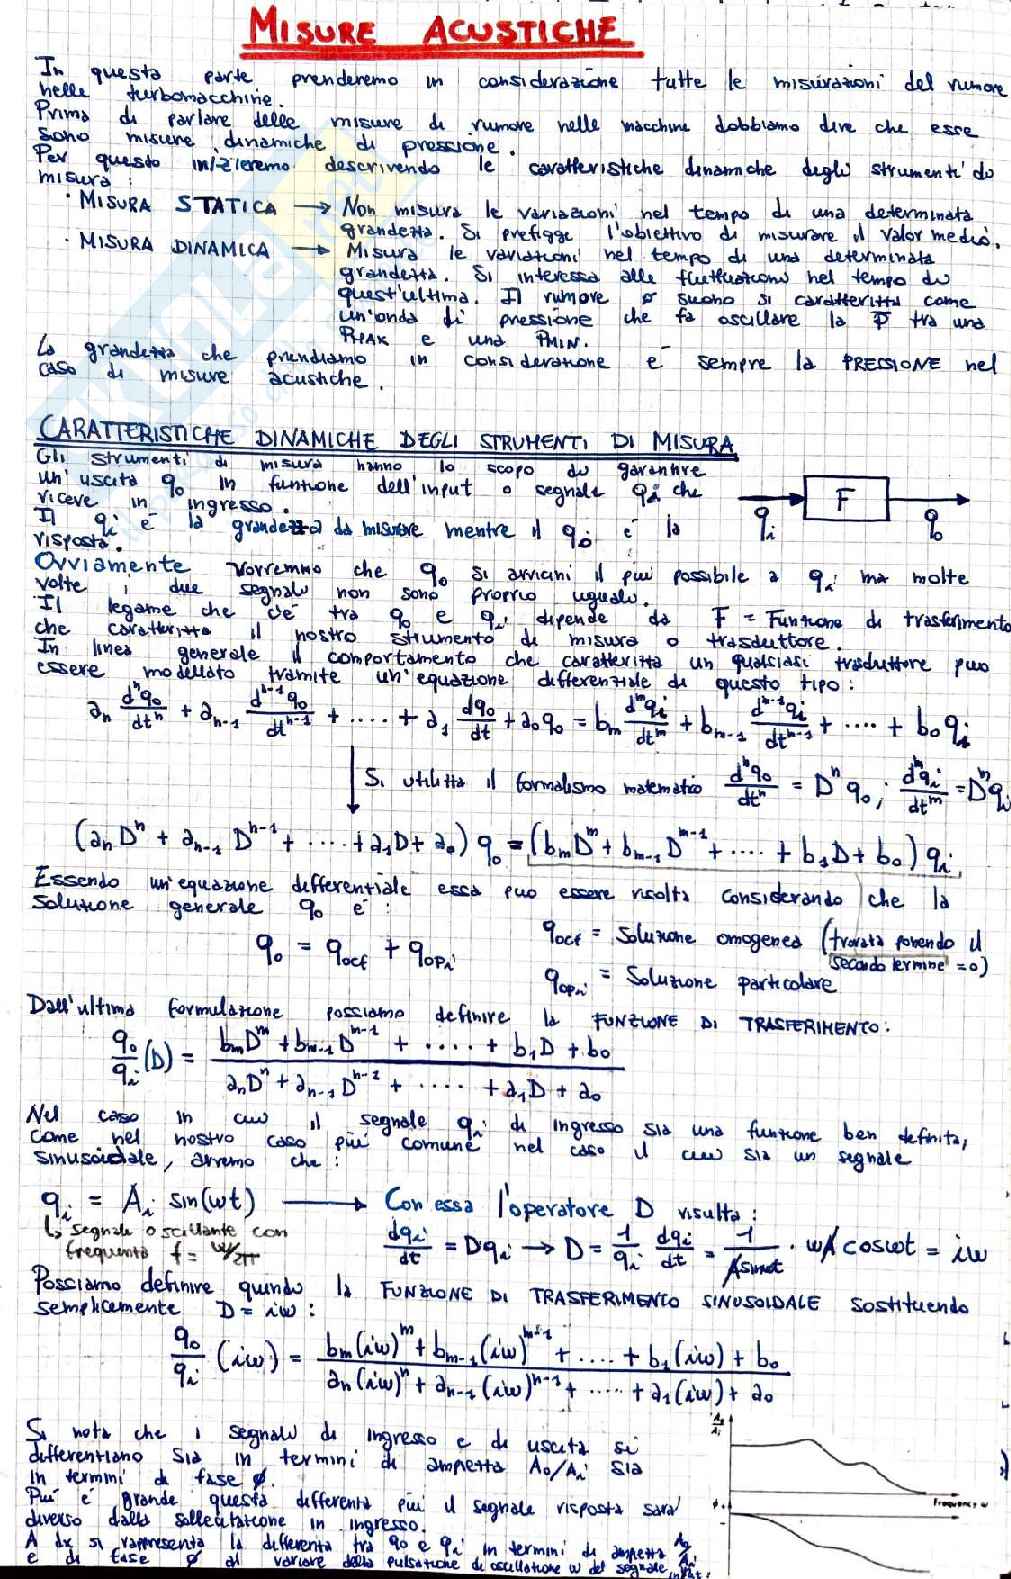 MISURE ACUSTICHE
In questa parte prenderemo in considerazione tutte le misurazioni del rumore
nelle turbomacchine.
Prima di parlare delle misure di rumore nelle macchine dobbiamo dire che esse
sono misure dinamiche di pressione.
Per questo inizieremo descrivendo le caratteristiche dinamiche degli strumenti di
misura:
· MISURA STATICA → Non misura le variazioni nel tempo di una determinata
grandezza. Si prefigge l'obiettivo di misurare il valor medio.
· MISURA DINAMICA → Misura le variazioni nel tempo di una determinata
grandezza. Si interessa alle fluttuazioni nel tempo di
quest'ultima. Il rumore o suono si caratterizza come
un'onda di pressione che fa oscillare la P tra una
PPEAK e una PMIN.
La grandezza che prendiamo in considerazione è sempre la PRESSIONE nel
caso di misure acustiche.
CARATTERISTICHE DINAMICHE DEGLI STRUMENTI DI MISURA
Gli strumenti di misura hanno lo scopo di garantire
un'uscita q₀ in funzione dell'input o segnale qᵢ che
riceve in ingresso.
Il qᵢ è la grandezza da misurare mentre il q₀ è la
risposta.
qᵢ F q₀
Ovviamente vorremmo che q₀ si avvicini il più possibile a qᵢ ma molte
volte i due segnali non sono proprio uguali.
Il legame che c'è tra q₀ e qᵢ dipende da F = Funzione di trasferimento
che caratterizza il nostro strumento di misura o trasduttore.
In linea generale il comportamento che caratterizza un qualsiasi traduttore può
essere modellato tramite un'equazione differenziale di questo tipo:
aₙ dⁿq₀/dtⁿ + aₙ₋₁ dⁿ⁻¹q₀/dtⁿ⁻¹ + .... + a₁ dq₀/dt + a₀q₀ = bₘ dᵐqᵢ/dtᵐ + bₘ₋₁ dᵐ⁻¹qᵢ/dtᵐ⁻¹ + .... + b₀qᵢ
Si utilizza il formalismo matematico dⁿq₀/dtⁿ = Dⁿq₀ ; dᵐqᵢ/dtᵐ = Dᵐqᵢ
(aₙDⁿ + aₙ₋₁Dⁿ⁻¹ + .... + a₁D + a₀) q₀ = (bₘDᵐ + bₘ₋₁Dᵐ⁻¹ + .... + b₁D + b₀) qᵢ
Essendo un'equazione differenziale essa può essere risolta considerando che la
soluzione generale q₀ è:
q₀ = qocf + qopi
qocf = Soluzione omogenea (trovata ponendo il
secondo termine = 0)
qopi = Soluzione particolare
Dall'ultima formulazione possiamo definire la FUNZIONE DI TRASFERIMENTO:
q₀/qᵢ (D) = (bₘDᵐ + bₘ₋₁Dᵐ⁻¹ + .... + b₁D + b₀) / (aₙDⁿ + aₙ₋₁Dⁿ⁻¹ + .... + a₁D + a₀)
Nel caso in cui il segnale qᵢ di ingresso sia una funzione ben definita,
come nel nostro caso più comune nel caso il cui sia un segnale
sinusoidale, avremo che:
qᵢ = Aᵢ sin(ωt) → Con essa l'operatore D risulta:
↳ segnale oscillante con
frequenza f = ω/2π
dqᵢ/dt = Dqᵢ → D = 1/qᵢ dqᵢ/dt = 1/(A sinωt) · ωA cosωt = iω
Possiamo definire quindi la FUNZIONE DI TRASFERIMENTO SINUSOIDALE sostituendo
semplicemente D = iω:
q₀/qᵢ (iω) = (bₘ(iω)ᵐ + bₘ₋₁(iω)ᵐ⁻¹ + .... + b₁(iω) + b₀) / (aₙ(iω)ⁿ + aₙ₋₁(iω)ⁿ⁻¹ + ..... + a₁(iω) + a₀)
Si nota che i segnali di ingresso e di uscita si
differenziano sia in termini di ampiezza A₀/Aᵢ sia
in termini di fase φ.
Più è grande questa differenza più il segnale risposta sarà
diverso dalla sollecitazione in ingresso.
A dx si rappresenta la differenza tra q₀ e qᵢ in termini di ampiezza A₀/Aᵢ
e di fase φ al variare della pulsazione di oscillazione ω del segnale input.
A₀/Aᵢ
Frequency ω
φ